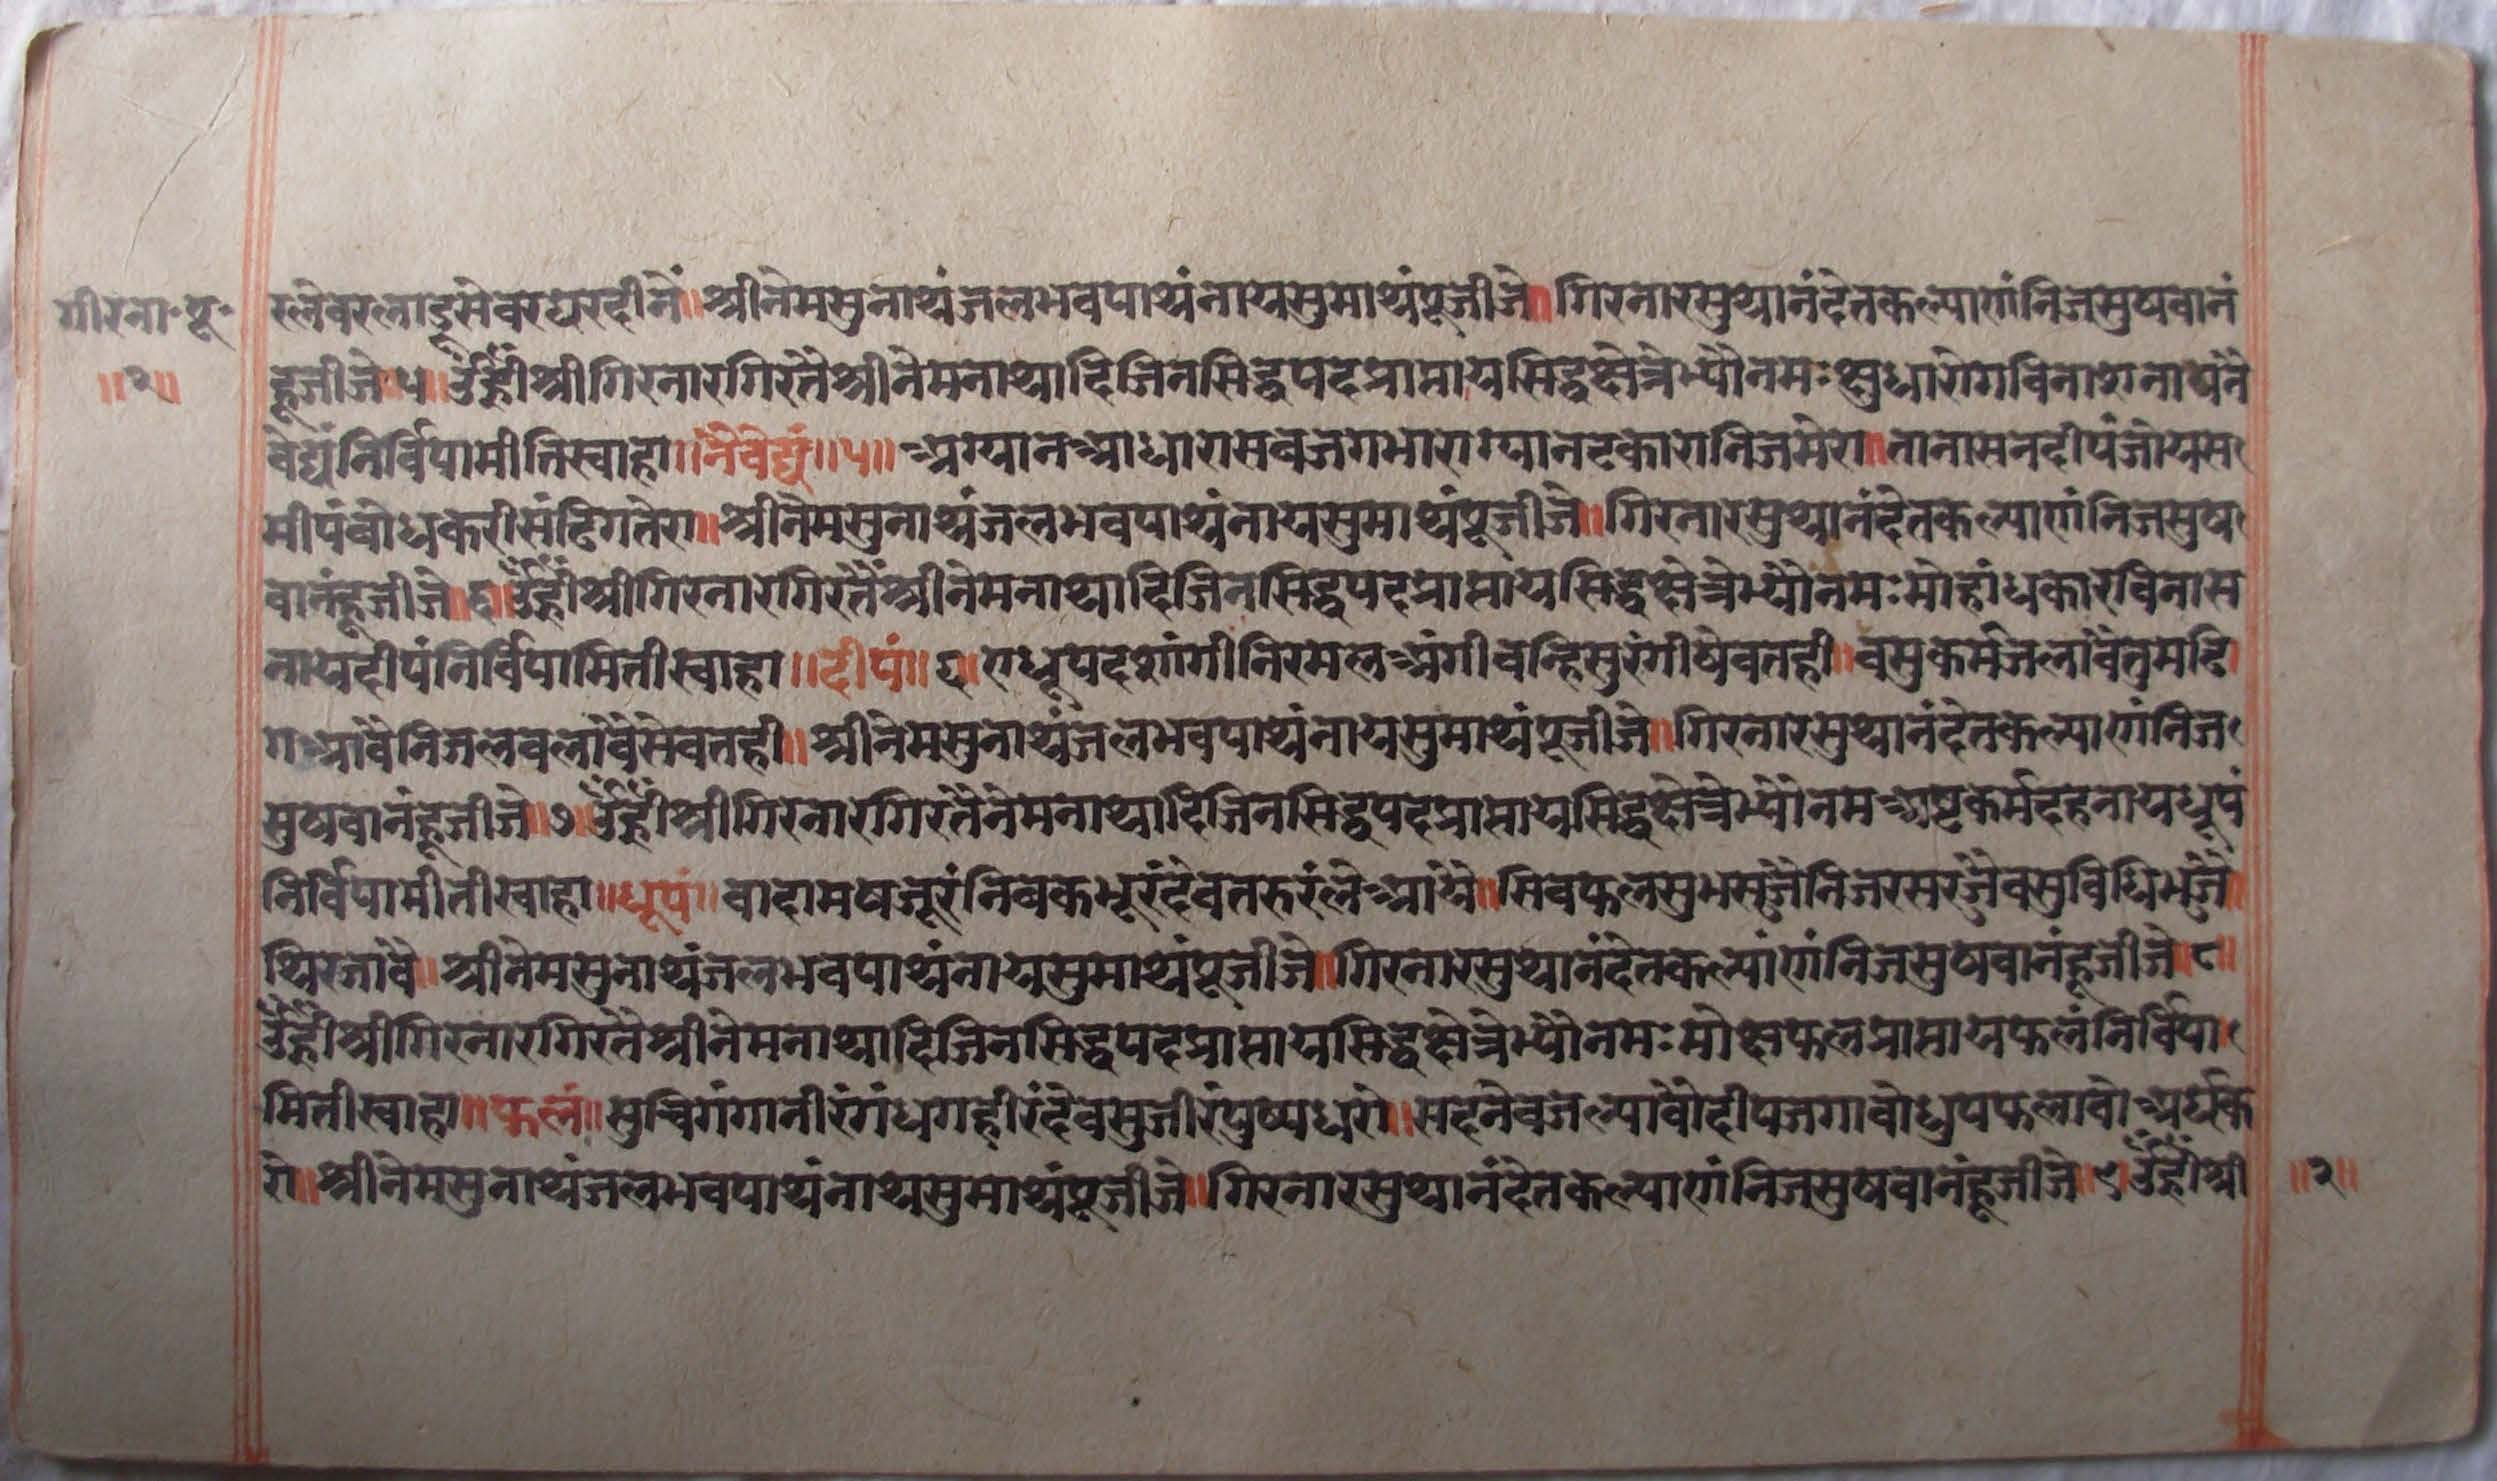 गीरनाःपूः
॥२॥
रलेवरलाडूसेवरघरदीनें॥श्रीनेमसुनाथंजलभवपाथंनायसुमाथंपूजीजे॥गिरनारसुथानंदेतकल्याणंनिजसुषवानं
हूजीजे॥५॥ॐह्रींश्रीगिरनारगिरतैश्रीनेमनाथादिजिनसिद्धपदप्राप्तायसिद्धक्षेत्रेभ्यौनमःक्षुधारोगविनाशनायनै
वेद्यंनिर्विपामीतिस्वाहा॥नैवेद्यं॥५॥अग्यानआधारासबजगभाराग्यानटकारानिजमेरा॥नानासनदीपंजोयस
मीपंबोधकरीसंटिगतेरा॥श्रीनेमसुनाथंजलभवपाथंनायसुमाथंपूजीजे॥गिरनारसुथानंदेतकल्याणंनिजसुष
वानंहूजीजे॥६॥ॐह्रींश्रीगिरनारगिरतैंश्रीनेमनाथादिजिनसिद्धपदप्राप्तायसिद्धक्षेत्रेभ्यौनमःमोहांधकारविनास
नायदीपंनिर्विपामितीस्वाहा॥दीपं॥६॥धूपदशांगीनिरमलअंगीवन्हिसुरंगीषेवतही॥वसुकर्मजलांवेंतुमढि
गआंवैनिजलवलांवैसेवतही॥श्रीनेमसुनाथंजलभवपाथंनायसुमाथंपूजीजे॥गिरनारसुथानंदेतकल्याणंनिज
सुषवानंहूजीजे॥७॥ॐह्रींश्रीगिरनारगिरतैंनेमनाथादिजिनसिद्धपदप्राप्तायसिद्धक्षेत्रेभ्यौनमअष्टकर्मदहनायधूपं
निर्विपामीतीस्वाहा॥धूपं॥बादामषजूरंनिबकभूरंदेवतरुरंलेआंये॥सिवफलसुभसजैंनिजरसरजैंवसुविधिभजैं
थिरजांवै॥श्रीनेमसुनाथंजलभवपाथंनायसुमाथंपूजीजे॥गिरनारसुथानंदेतकल्यांणंनिजसुषवानंहूजीजे॥८॥
ॐह्रींश्रीगिरनारगिरतैश्रीनेमनाथादिजिनसिद्धपदप्राप्तायसिद्धक्षेत्रेभ्यौनमःमोक्षफलप्राप्तायफलंनिर्विपा
मितीस्वाहा॥फलं॥सुचिगंगानीरंगंधगहीरंदेवसुजीरंपुष्पधरो॥सहनेवजल्यावोंदीपजगावोधुपफलावोअर्घक
रो॥श्रीनेमसुनाथंजलभवपाथंनायसुमाथंपूजीजे॥गिरनारसुथानंदेतकल्याणंनिजसुषवानंहूजीजे॥९॥ॐह्रींश्री
॥२॥